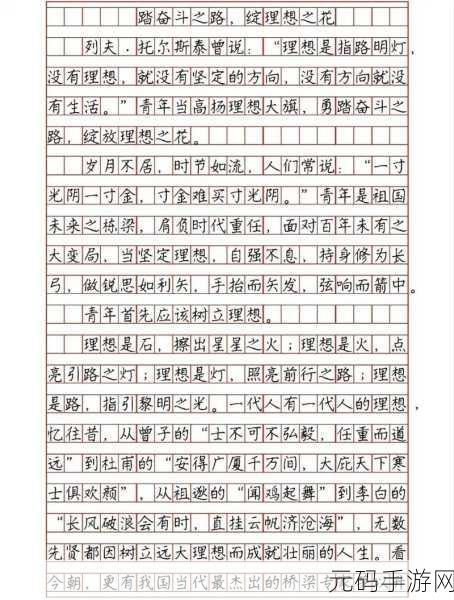 踏奋斗之路，绽理想之花
列夫·托尔斯泰曾说：“理想是指路明灯，
没有理想，就没有坚定的方向，没有方向就没
有生活。”青年当高扬理想大旗，勇踏奋斗之
路，绽放理想之花。
岁月不居，时节如流，人们常说：“一寸
光阴一寸金，寸金难买寸光阴。”青年是祖国
未来之栋梁，肩负时代重任，面对百年未有之
大变局，当坚定理想，自强不息，持身修为长
弓，做锐思如利矢，手抬而矢发，弦响而箭中。
青年首先应该树立理想。
理想是石，擦出星星之火；理想是火，点
亮引路之灯；理想是灯，照亮前行之路；理想
是路，指引黎明之光。一代人有一代人的理想，
忆往昔，从曾子的“士不可不弘毅，任重而道
远”到杜甫的“安得广厦千万间，大庇天下寒
士俱欢颜”，从祖逖的“闻鸡起舞”到李白的
“长风破浪会有时，直挂云帆济沧海”，无数
先贤都因树立远大理想而成就壮丽的人生。看
今朝，更有我国当代最杰出的桥梁专
元码手游网